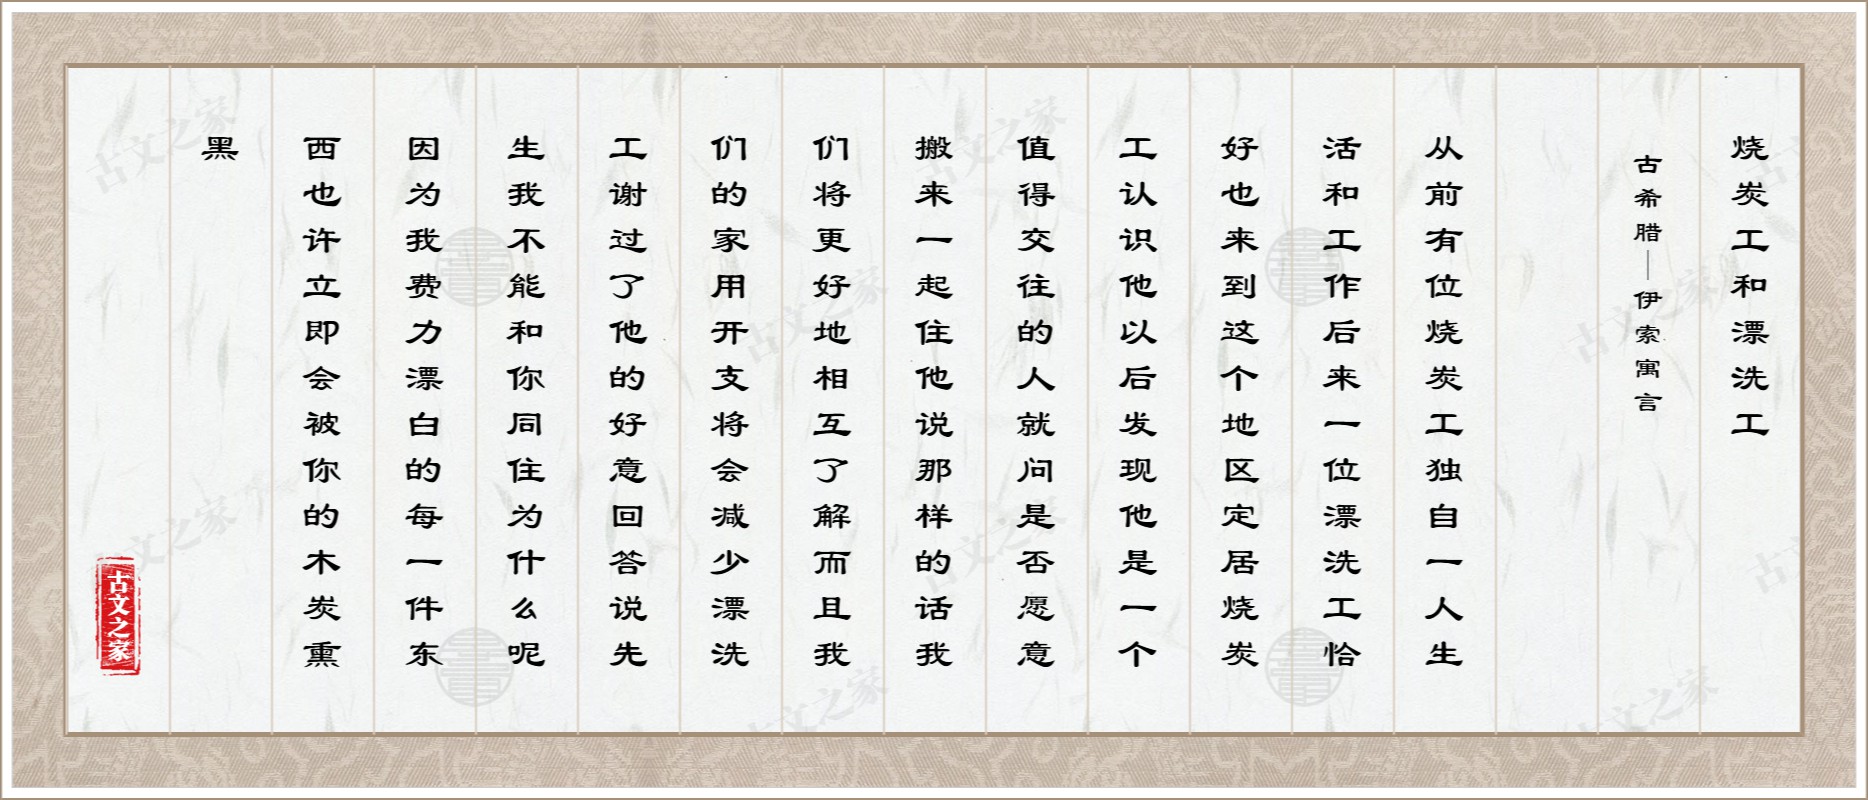 烧炭工和漂洗工
古希腊—伊索寓言
从前有位烧炭工独自一人生
活和工作后来一位漂洗工恰
好也来到这个地区定居烧炭
工认识他以后发现他是一个
值得交往的人就问是否愿意
搬来一起住他说那样的话我
们将更好地相互了解而且我
们的家用开支将会减少漂洗
工谢过了他的好意回答说先
生我不能和你同住为什么呢
因为我费力漂白的每一件东
西也许立即会被你的木炭熏
黑
古文之家